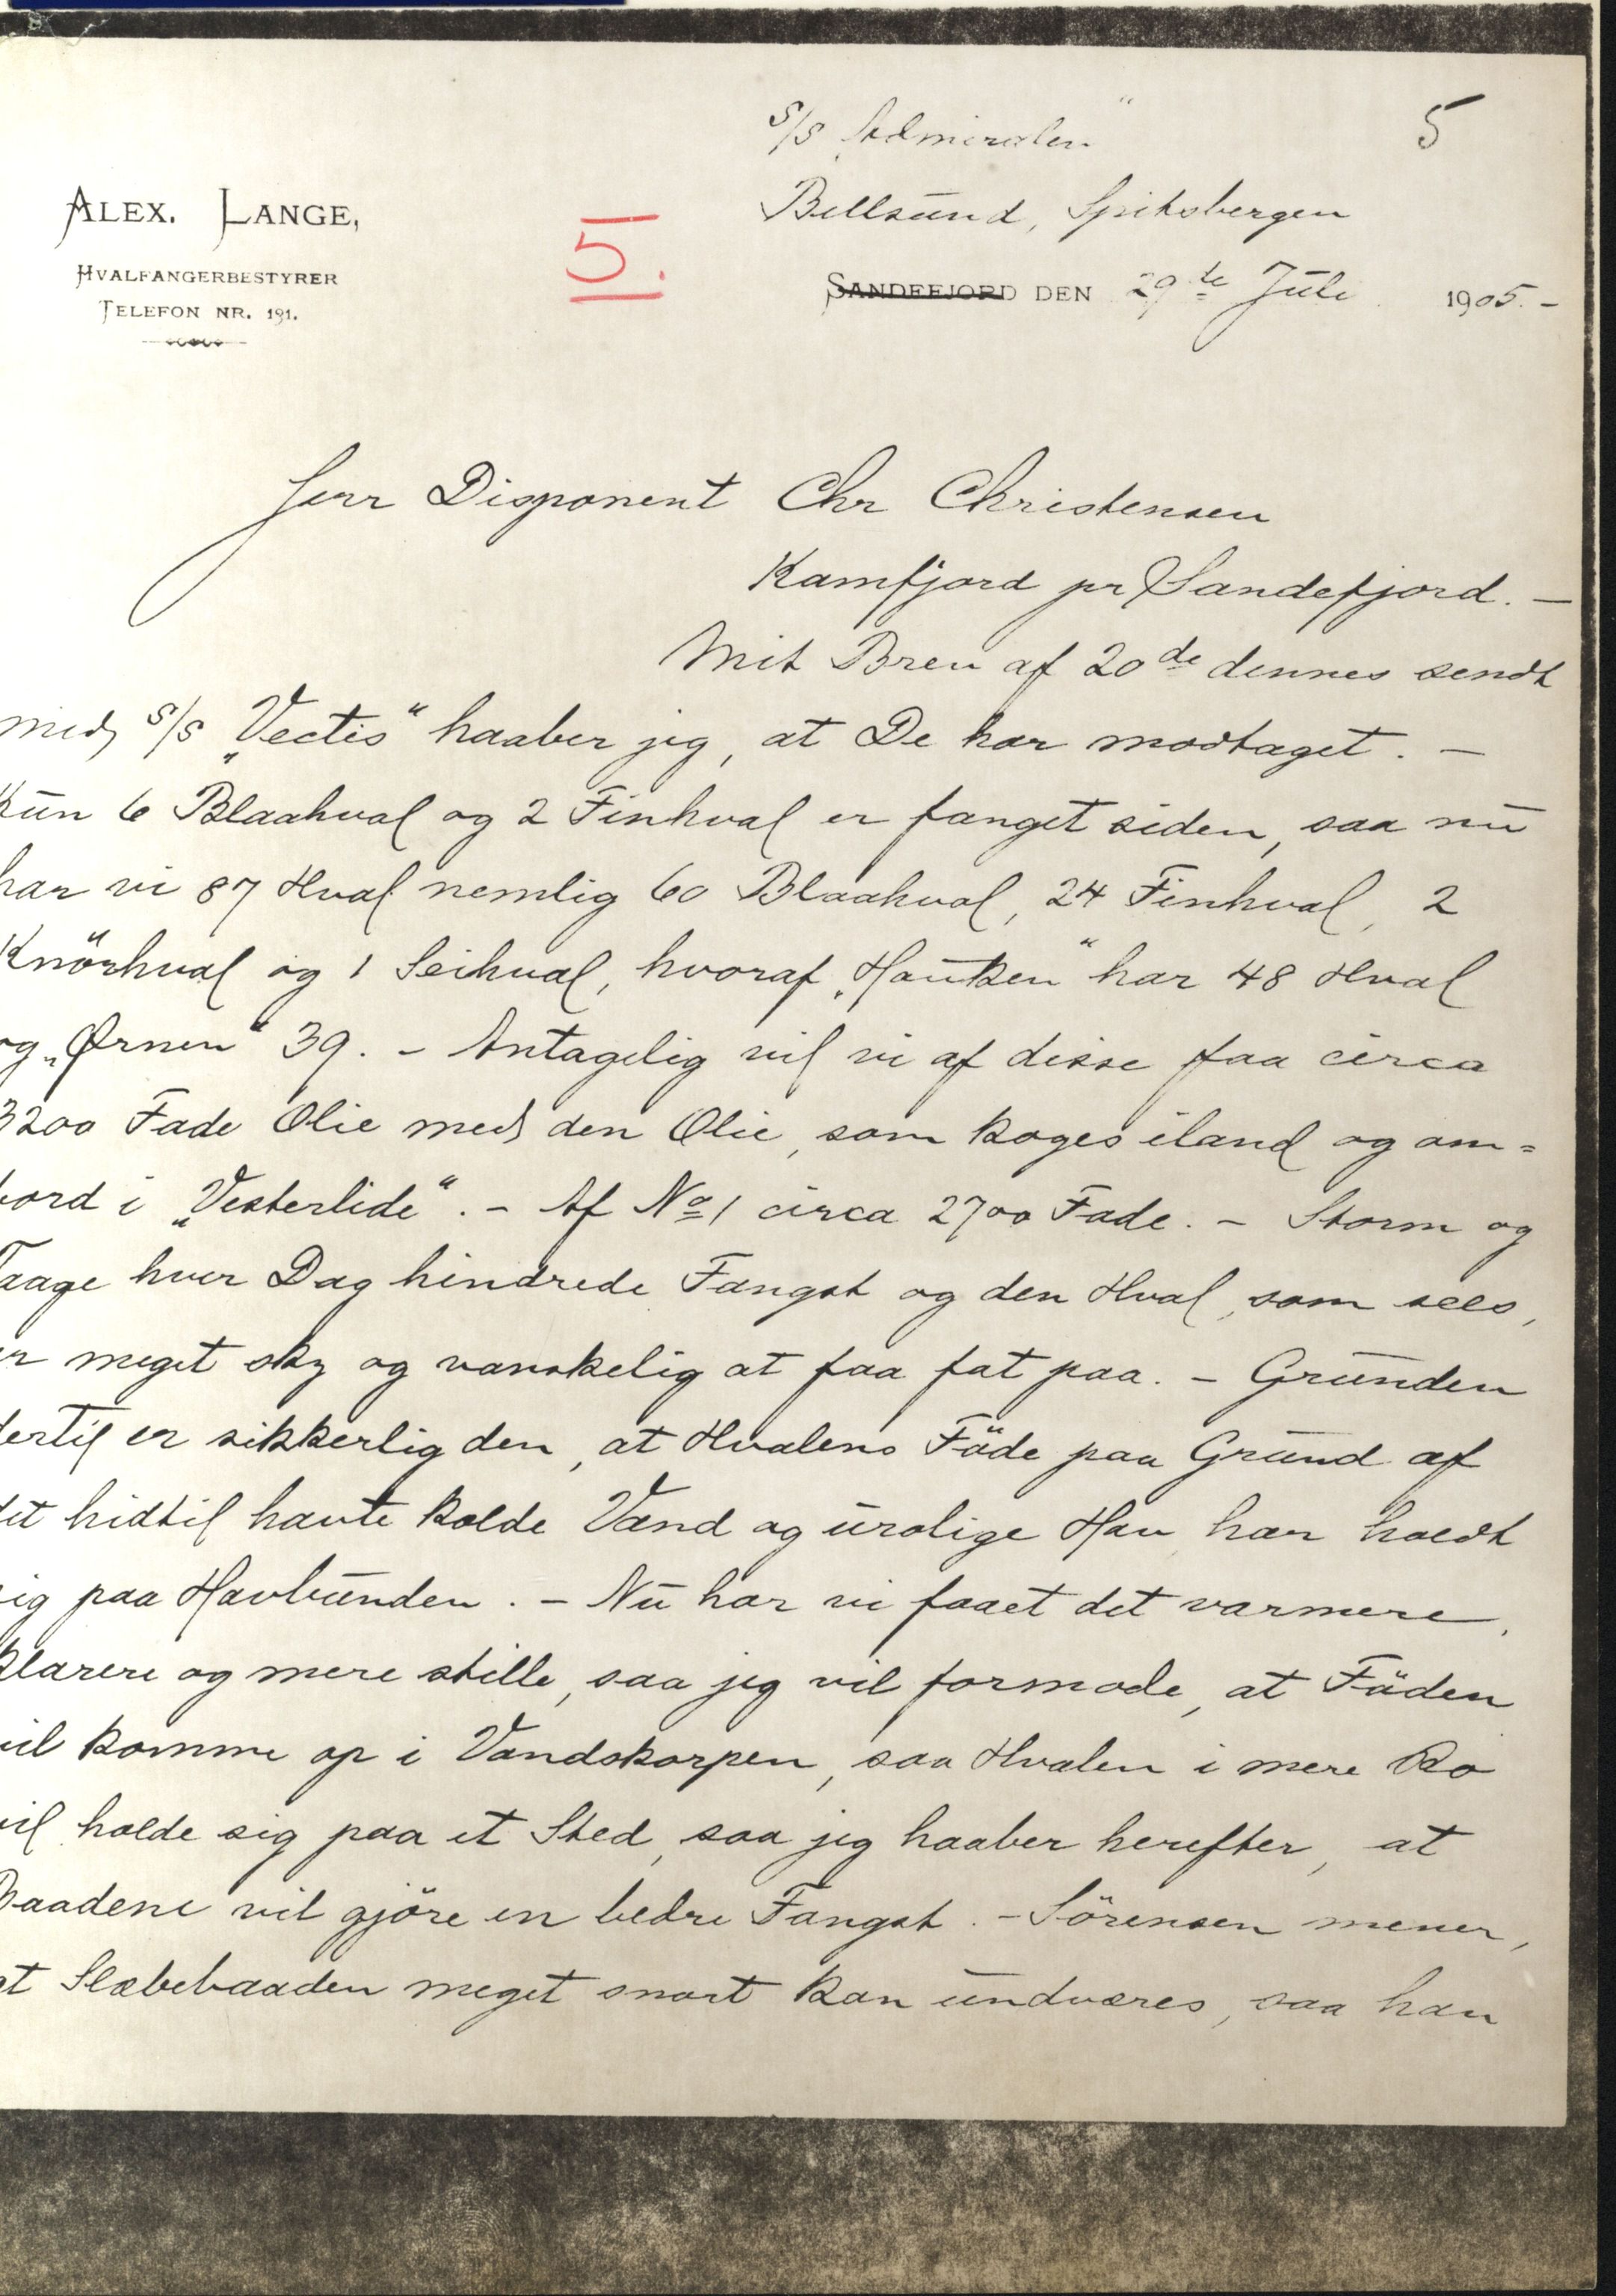 S/S "Admiralen"
5
Bellsund, Spitsbergen
ALEX. LANGE,
HVALFANGERBESTYRER
TELEFON NR. 191.
5.
SANDEFJORD DEN 29de Juli 1905.-
Herr Disponent Chr Christensen
Kamfjord pr Sandefjord. —
Mit Brev af 20de dennes sendt
med S/S „Vectis“ haaber jeg, at De har modtaget. —
Kun 6 Blaahval og 2 Finhval er fanget siden, saa nu
har vi 87 Hval nemlig 60 Blaahval, 24 Finhval, 2
Knörhval og 1 Seihval, hvoraf „Hauken“ har 48 Hval
og „Ørnen“ 39. - Antagelig vil vi af disse faa circa
3200 Fade Olie med den Olie, som koges iland og om=
bord i „Vesterlide“. - Af No 1 circa 2700 Fade. - Storm og
Taage hver Dag hindrede Fangst og den Hval, som sees,
er meget sky og vanskelig at faa fat paa. - Grunden
dertil er sikkerlig den, at Hvalens Föde paa Grund af
det hidtil havte kolde Vand og urolige Hav har holdt
sig paa Havbunden. - Nu har vi faaet det varmere,
klarere og mere stille, saa jeg vil formode, at Föden
vil komme op i Vandskorpen, saa Hvalen i mere Ro
vil holde sig paa et Sted, saa jeg haaber herefter, at
Baadene vil gjöre en bedre Fangst. - Sörensen mener,
at Slæbebaaden meget snart kan undværes, saa han